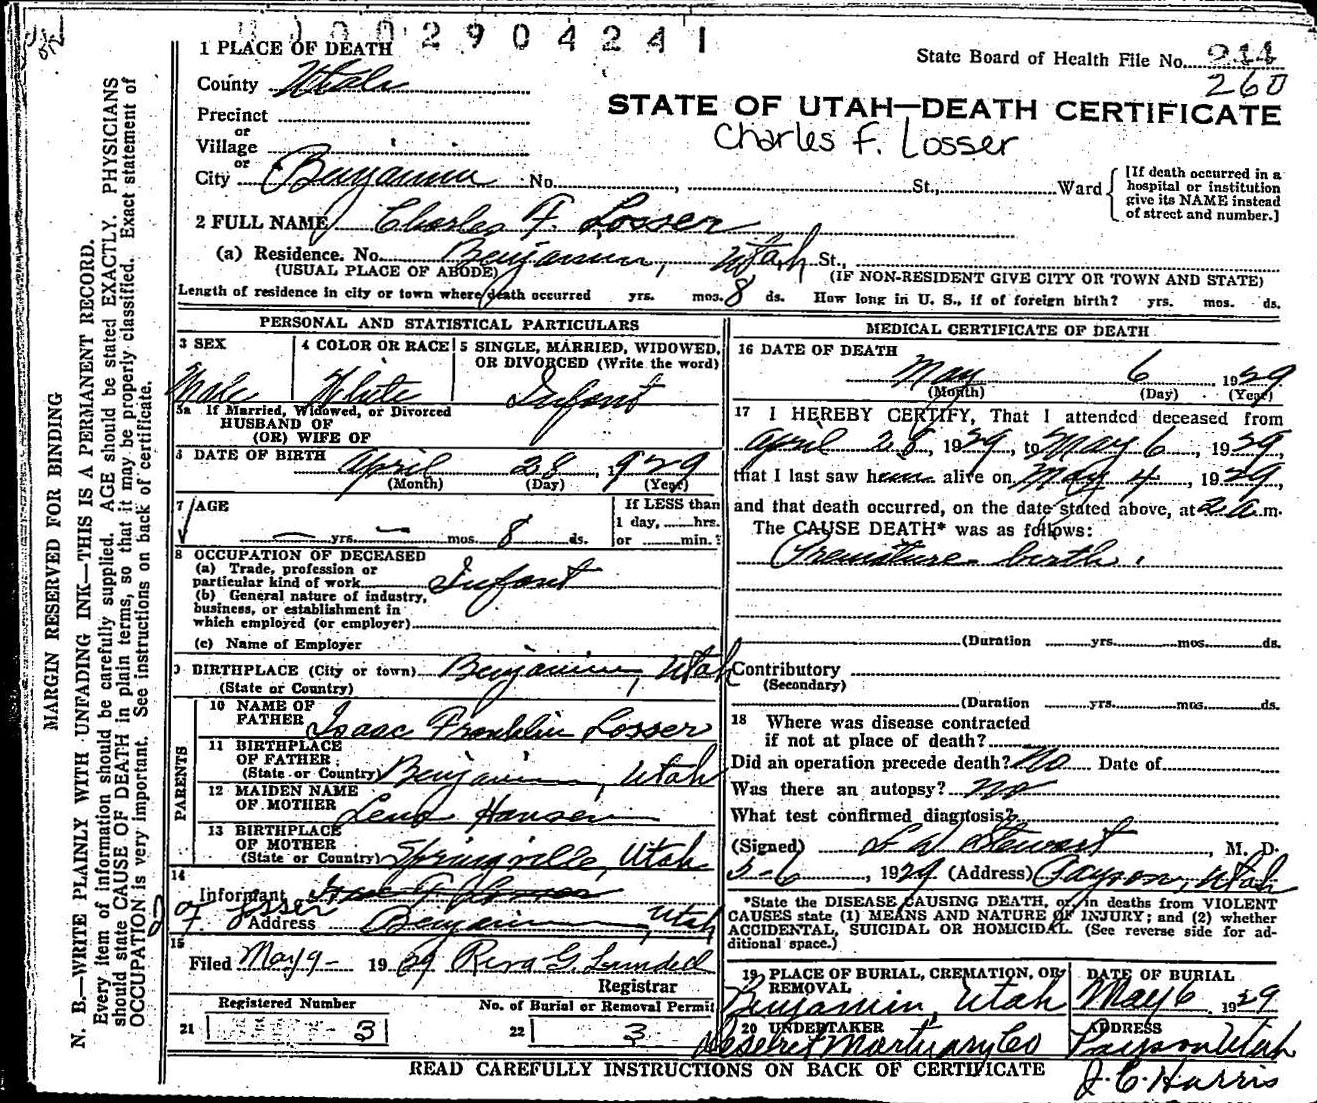 2904241
1 PLACE OF DEATH
State Board of Health File No. 244
260
County Utah
STATE OF UTAH—DEATH CERTIFICATE
Charles F. Losser
Precinct
or
Village
or
City Benjamin No. , St., Ward
[If death occurred in a
hospital or institution
give its NAME instead
of street and number.]
2 FULL NAME Charles F. Losser
(a) Residence. No. Benjamin, Utah St.,
(USUAL PLACE OF ABODE) (IF NON-RESIDENT GIVE CITY OR TOWN AND STATE)
Length of residence in city or town where death occurred yrs. mos. 8 ds. How long in U. S., if of foreign birth? yrs. mos. ds.
PERSONAL AND STATISTICAL PARTICULARS
3 SEX
Male
4 COLOR OR RACE
White
5 SINGLE, MARRIED, WIDOWED,
OR DIVORCED (Write the word)
Infant
5a If Married, Widowed, or Divorced
HUSBAND OF
(OR) WIFE OF
6 DATE OF BIRTH April 28, 1929
(Month) (Day) (Year)
7 AGE
— yrs. — mos. 8 ds.
If LESS than
1 day, hrs.
or min.?
8 OCCUPATION OF DECEASED
(a) Trade, profession or
particular kind of work Infant
(b) General nature of industry,
business, or establishment in
which employed (or employer)
(c) Name of Employer
9 BIRTHPLACE (City or town) Benjamin, Utah
(State or Country)
PARENTS
10 NAME OF
FATHER Isaac Franklin Losser
11 BIRTHPLACE
OF FATHER
(State or Country) Benjamin, Utah
12 MAIDEN NAME
OF MOTHER Lena Hansen
13 BIRTHPLACE
OF MOTHER
(State or Country) Springville, Utah
14
Informant
F. Losser
Address Benjamin, Utah
15
Filed May 9- 1929 Reva G. Lundell
Registrar
Registered Number
21 3
No. of Burial or Removal Permit
22 3
MEDICAL CERTIFICATE OF DEATH
16 DATE OF DEATH
May 6, 1929
(Month) (Day) (Year)
17 I HEREBY CERTIFY, That I attended deceased from
April 28, 1929, to May 6, 1929,
that I last saw him alive on May 4, 1929,
and that death occurred, on the date stated above, at 2 a.m.
The CAUSE DEATH* was as follows:
Premature birth.
(Duration yrs. mos. ds.
Contributory
(Secondary)
(Duration yrs. mos. ds.
18 Where was disease contracted
if not at place of death?
Did an operation precede death? No Date of
Was there an autopsy? No
What test confirmed diagnosis?
(Signed) L W Stewart, M. D.
5-6, 1929 (Address) Payson, Utah
*State the DISEASE CAUSING DEATH, or in deaths from VIOLENT
CAUSES state (1) MEANS AND NATURE OF INJURY; and (2) whether
ACCIDENTAL, SUICIDAL OR HOMICIDAL. (See reverse side for ad-
ditional space.)
19 PLACE OF BURIAL, CREMATION, OR
REMOVAL
Benjamin, Utah
DATE OF BURIAL
May 6 1929
20 UNDERTAKER
Deseret Mortuary Co
ADDRESS
Payson Utah
J. C. Harris
READ CAREFULLY INSTRUCTIONS ON BACK OF CERTIFICATE
MARGIN RESERVED FOR BINDING
N. B.—WRITE PLAINLY WITH UNFADING INK—THIS IS A PERMANENT RECORD.
Every item of information should be carefully supplied. AGE should be stated EXACTLY. PHYSICIANS
should state CAUSE OF DEATH in plain terms, so that it may be properly classified. Exact statement of
OCCUPATION is very important. See instructions on back of certificate.